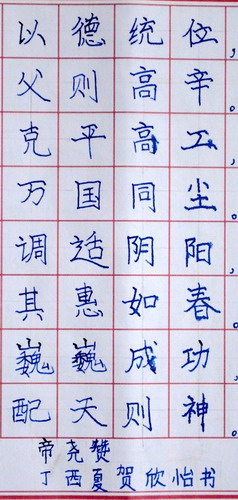 以德统位，
父则高辛。
克平高工，
万国同尘。
调适阴阳，
其惠如春。
巍巍成功，
配天则神。
帝尧赞
丁酉夏贺欣怡书